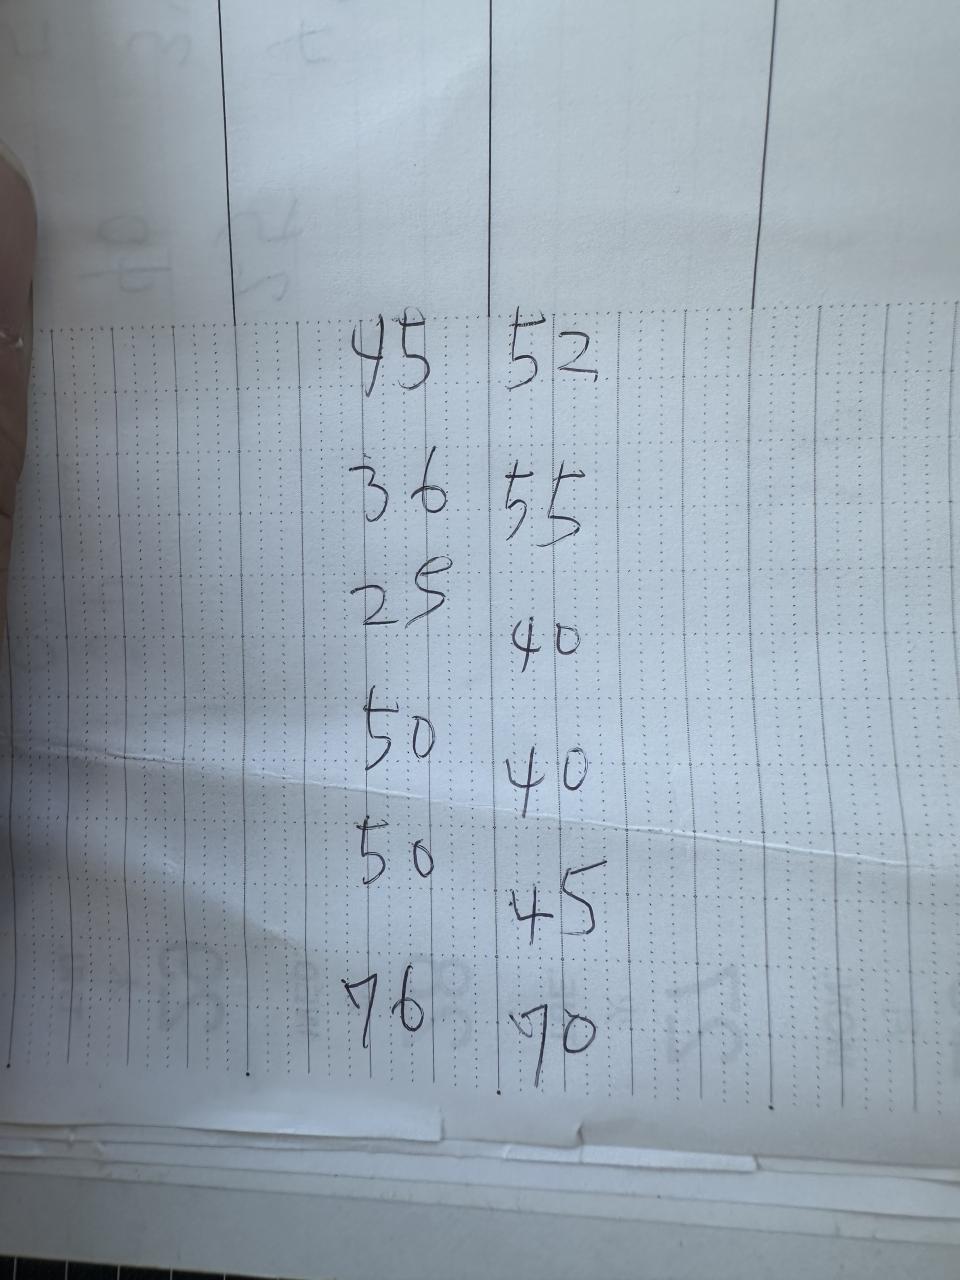 45 52
36 55
25 40
50 40
50 45
76 70